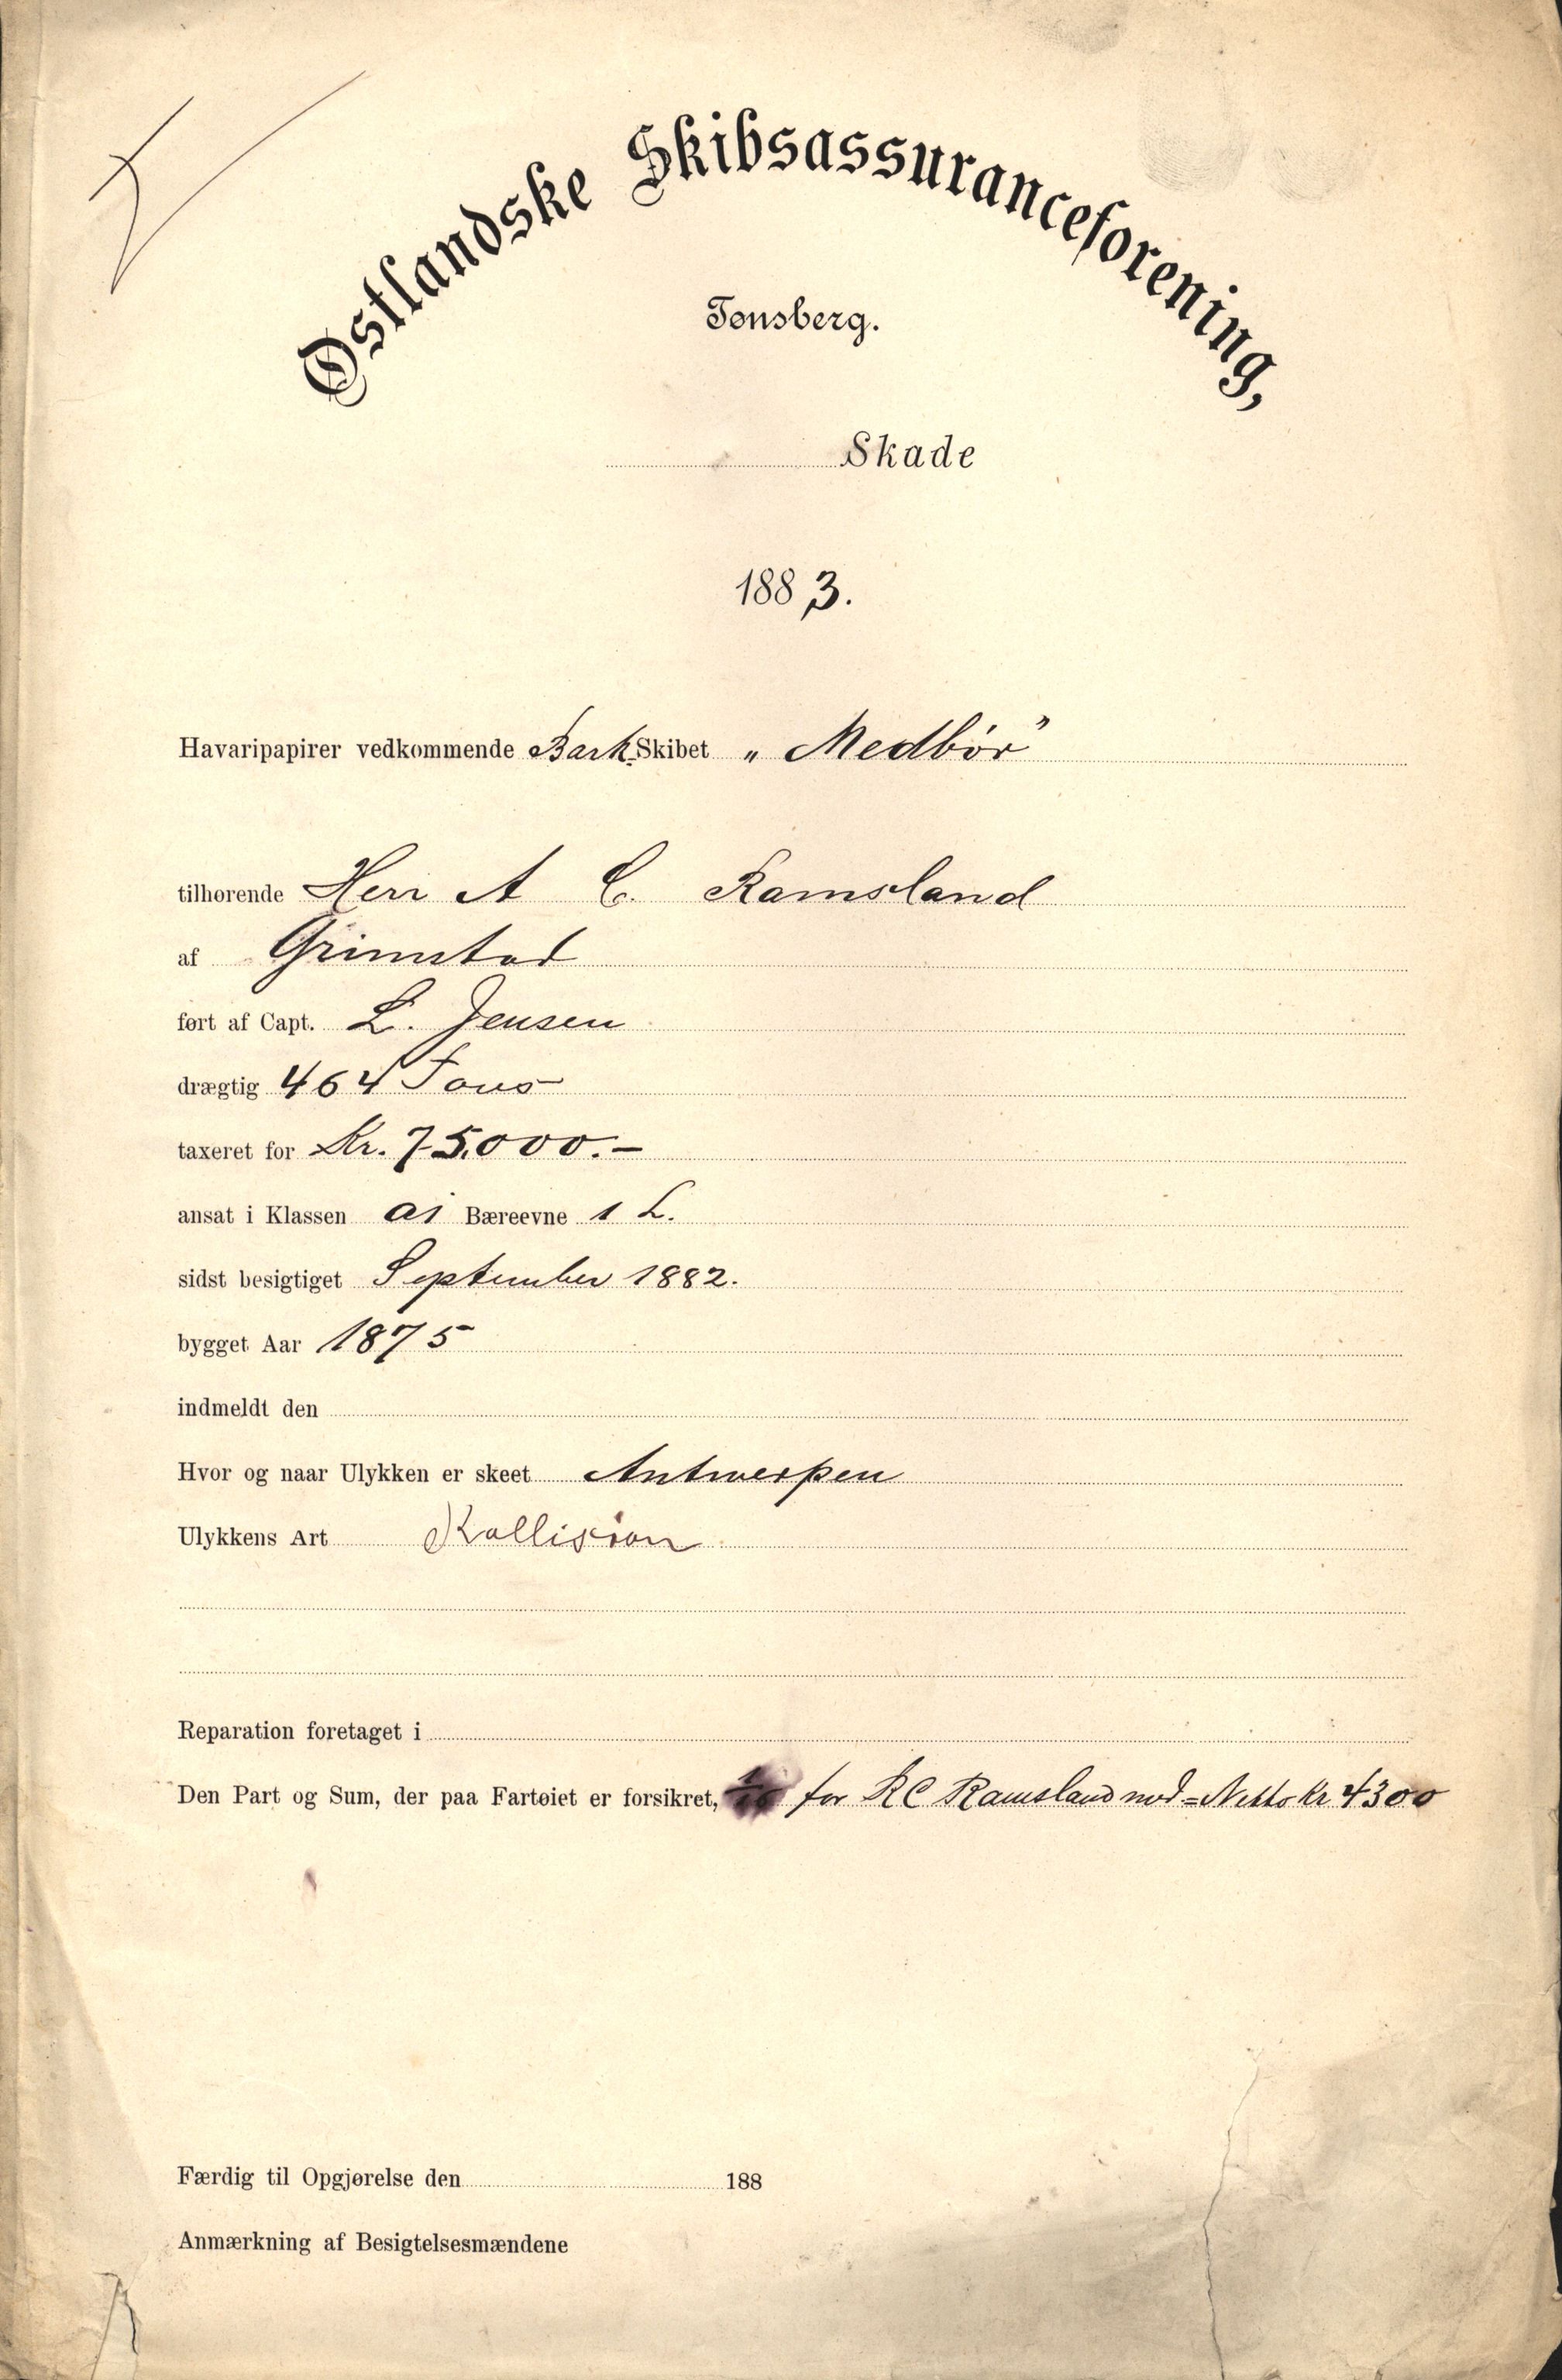 Østlandske Skibsassuranceforening,
Tønsberg.
Skade
1883.
Havaripapirer vedkommende Bark-Skibet „Medbör”
tilhørende Herr A C. Ramsland
af Grimstad
ført af Capt. L. Jensen
drægtig 464 Tons
taxeret for Kr. 75,000.–
ansat i Klassen A1 Bæreevne 1 L.
sidst besigtiget September 1882.
bygget Aar 1875
indmeldt den
Hvor og naar Ulykken er skeet Antwerpen
Ulykkens Art Kollision
Reparation foretaget i
Den Part og Sum, der paa Fartøiet er forsikret, for RC Ramsland Netto Kr 4300
Færdig til Opgjørelse den 188
Anmærkning af Besigtelsesmændene